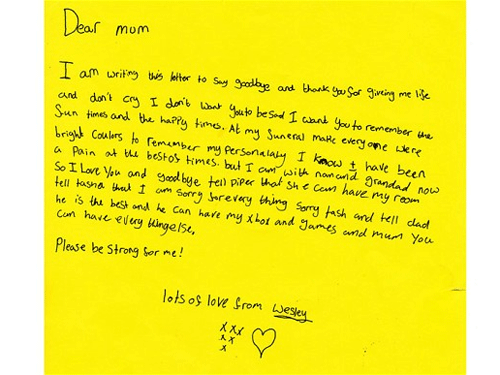 Dear mum
I am writing this letter to say goodbye and thank you for giveing me life
and don't cry I don't want you to be sad I want you to remember the
Sun times and the happy times. At my funeral make everyone were
bright coulors to remember my personalaty I know I have been
a pain at the bestofs times. but I am with nan and grandad now
So I Love You and goodbye tell Piper that she can have my room
tell tasha that I am sorry for every thing sorry tash and tell dad
he is the best and he can have my xbox and games and mum you
can have every thing else.
Please be strong for me!
lots of love from Wesley
x x x
x x
x